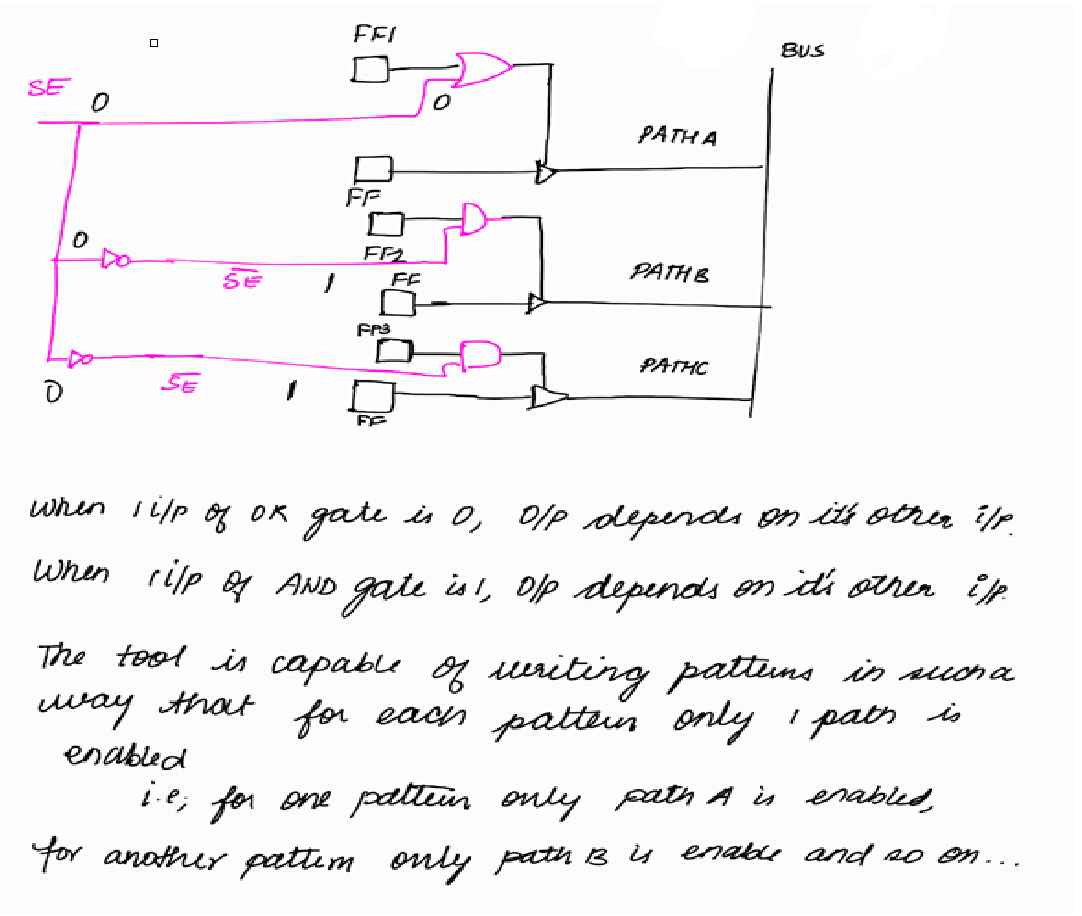 FF1
BUS
SE
0
0
PATH A
FF
0
FF2
PATH B
SE
1
FF
FF3
PATHC
SE
0
1
FF
When 1 i/p of OR gate is 0, O/p depends on it's other i/p.
When 1 i/p of AND gate is 1, O/p depends on it's other i/p.
The tool is capable of writing patterns in such a
way that for each pattern only 1 path is
enabled
i.e; for one pattern only path A is enabled,
for another pattern only path B is enable and so on...